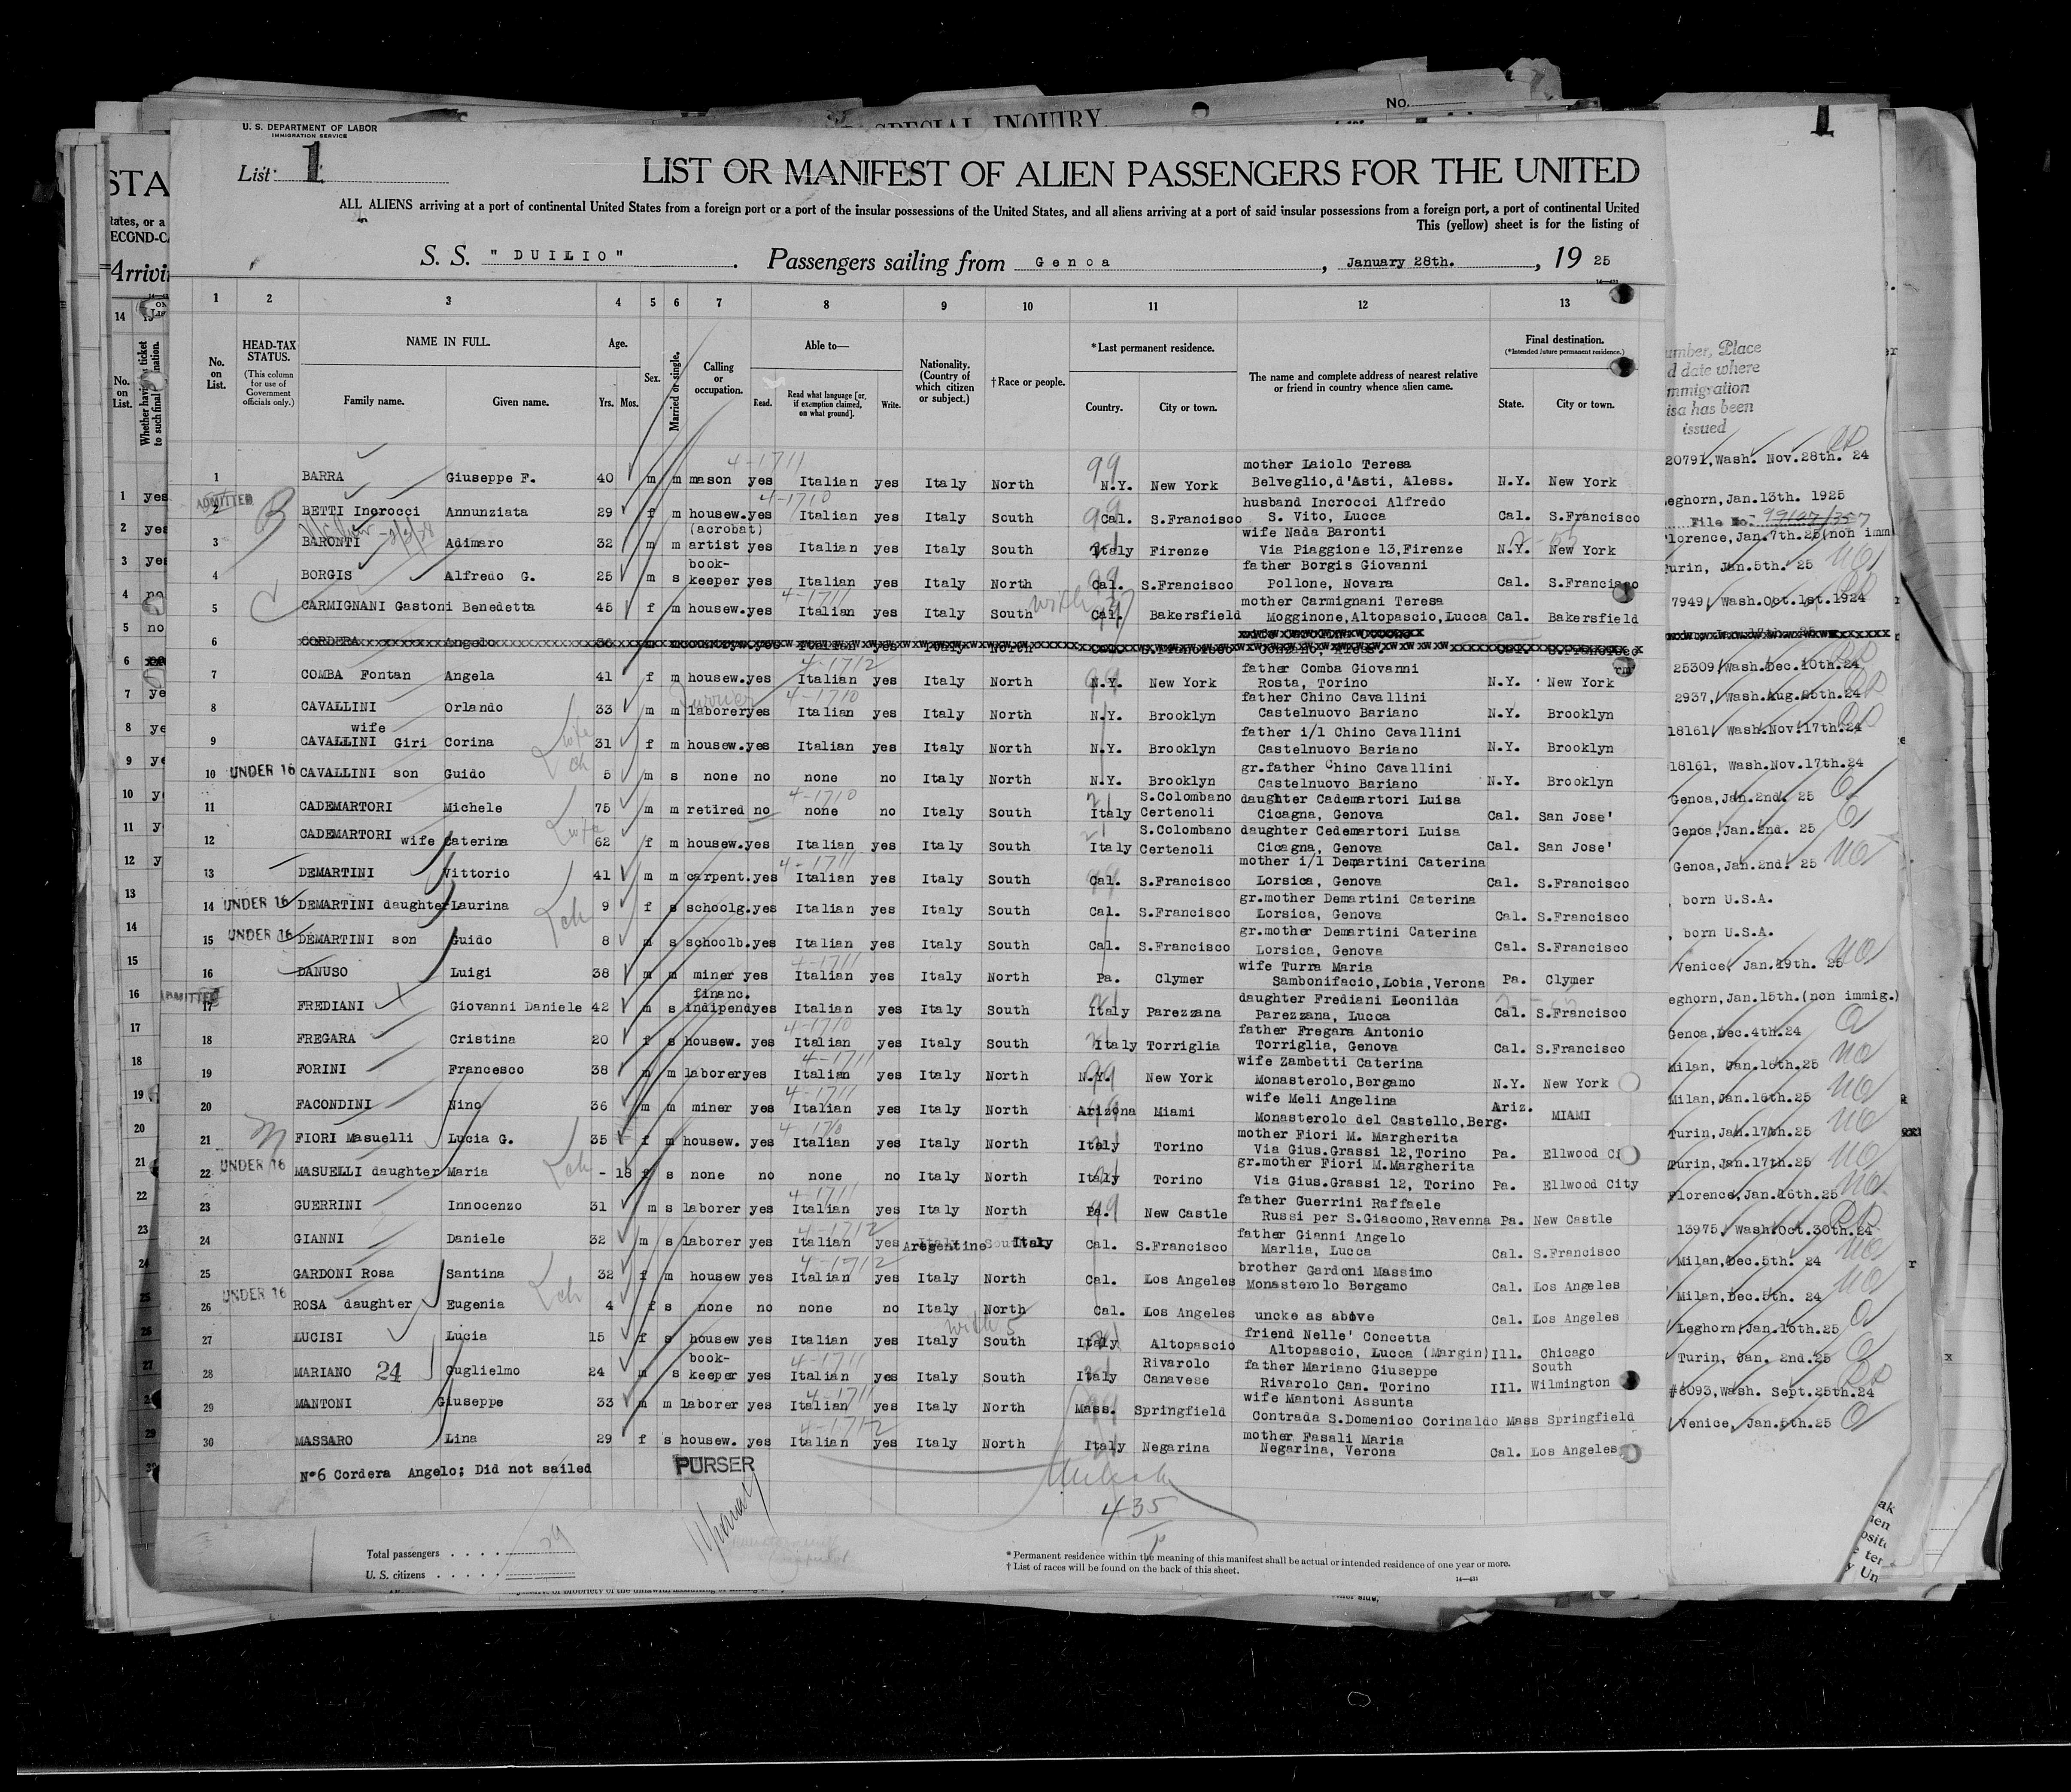 No.
SPECIAL INQUIRY.
U. S. DEPARTMENT OF LABOR
IMMIGRATION SERVICE
List 1
1
LIST OR MANIFEST OF ALIEN PASSENGERS FOR THE UNITED
ALL ALIENS arriving at a port of continental United States from a foreign port or a port of the insular possessions of the United States, and all aliens arriving at a port of said insular possessions from a foreign port, a port of continental United
This (yellow) sheet is for the listing of
S. S. "DUILIO". Passengers sailing from Genoa, January 28th., 19 25
1 2 3 4 5 6 7 8 9 10 11 12 13
No. on List.
HEAD-TAX STATUS.
(This column for use of Government officials only.)
NAME IN FULL.
Family name. Given name.
Age.
Yrs. Mos.
Sex.
Married or single.
Calling or occupation.
Able to—
Read. Read what language [or, if exemption claimed, on what ground]. Write.
Nationality. (Country of which citizen or subject.)
†Race or people.
*Last permanent residence.
Country. City or town.
The name and complete address of nearest relative or friend in country whence alien came.
Final destination.
(*Intended future permanent residence.)
State. City or town.
umber, Place
d date where
mmigration
isa has been
issued
1 BARRA Giuseppe F. 40 m m mason yes Italian yes Italy North N.Y. New York mother Laiolo Teresa Belveglio,d'Asti, Aless. N.Y. New York 20791,Wash. Nov.28th. 24
ADMITTED
2 BETTI Incrocci Annunziata 29 f m housew.yes Italian yes Italy South Cal. S.Francisco husband Incrocci Alfredo S. Vito, Lucca Cal. S.Francisco eghorn,Jan.13th. 1925
File No. 99127/357
3 BARONTI Adimaro 32 m m (acrobat) artist yes Italian yes Italy South Italy Firenze wife Nada Baronti Via Piaggione 13,Firenze N.Y. New York lorence,Jan.7th.25(non imm
4 BORGIS Alfredo G. 25 m s book-keeper yes Italian yes Italy North Cal. S.Francisco father Borgis Giovanni Pollone, Novara Cal. S.Francisco urin, Jan.5th. 25
5 CARMIGNANI Gastoni Benedetta 45 f m housew.yes Italian yes Italy South Cal. Bakersfield mother Carmignani Teresa Mogginone,Altopascio,Lucca Cal. Bakersfield 7949, Wash.Oct.1st.1924
6 CORDERA Angelo
7 COMBA Fontan Angela 41 f m housew.yes Italian yes Italy North N.Y. New York father Comba Giovanni Rosta, Torino N.Y. New York 25309,Wash.Dec.10th.24
8 CAVALLINI Orlando 33 m m laborer yes Italian yes Italy North N.Y. Brooklyn father Chino Cavallini Castelnuovo Bariano N.Y. Brooklyn 2937, Wash.Aug.25th.24
9 CAVALLINI wife Giri Corina 31 f m housew.yes Italian yes Italy North N.Y. Brooklyn father i/l Chino Cavallini Castelnuovo Bariano N.Y. Brooklyn 18161, Wash.Nov.17th.24
10 UNDER 16 CAVALLINI son Guido 5 m s none no none no Italy North N.Y. Brooklyn gr.father Chino Cavallini Castelnuovo Bariano N.Y. Brooklyn 18161, Wash.Nov.17th.24
11 CADEMARTORI Michele 75 m m retired no none no Italy South Italy S.Colombano Certenoli daughter Cademartori Luisa Cicagna, Genova Cal. San Jose' Genoa,Jan.2nd. 25
12 CADEMARTORI wife Caterina 62 f m housew.yes Italian yes Italy South Italy S.Colombano Certenoli daughter Cedemartori Luisa Cicagna, Genova Cal. San Jose' Genoa,Jan.2nd. 25
13 DEMARTINI Vittorio 41 m m carpent.yes Italian yes Italy South Cal. S.Francisco mother i/l Demartini Caterina Lorsica, Genova Cal. S.Francisco Genoa,Jan.2nd. 25
14 UNDER 16 DEMARTINI daughter Laurina 9 f s schoolg.yes Italian yes Italy South Cal. S.Francisco gr.mother Demartini Caterina Lorsica, Genova Cal. S.Francisco born U.S.A.
15 UNDER 16 DEMARTINI son Guido 8 m s schoolb.yes Italian yes Italy South Cal. S.Francisco gr.mother Demartini Caterina Lorsica, Genova Cal. S.Francisco born U.S.A.
16 DANUSO Luigi 38 m m miner yes Italian yes Italy North Pa. Clymer wife Turra Maria Sambonifacio,Lobia,Verona Pa. Clymer Venice, Jan.19th. 25
ADMITTED
17 FREDIANI Giovanni Daniele 42 m s financ. indipend yes Italian yes Italy South Italy Parezzana daughter Frediani Leonilda Parezzana, Lucca Cal. S.Francisco eghorn,Jan.15th.(non immig.)
18 FREGARA Cristina 20 f s housew. yes Italian yes Italy South Italy Torriglia father Fregara Antonio Torriglia, Genova Cal. S.Francisco Genoa,Dec.4th.24
19 FORINI Francesco 38 m m laborer yes Italian yes Italy North N.Y. New York wife Zambetti Caterina Monasterolo,Bergamo N.Y. New York Milan, Jan.16th.25
20 FACONDINI Nino 36 m m miner yes Italian yes Italy North Arizona Miami wife Meli Angelina Monasterolo del Castello,Berg. Ariz. MIAMI Milan,Jan.16th.25
21 FIORI Masuelli Lucia G. 35 f m housew. yes Italian yes Italy North Italy Torino mother Fiori M. Margherita Via Gius.Grassi 12,Torino Pa. Ellwood Ci Turin,Jan.17th.25
22 UNDER 16 MASUELLI daughter Maria - 18 f s none no none no Italy North Italy Torino gr.mother Fiori M.Margherita Via Gius.Grassi 12, Torino Pa. Ellwood City Turin,Jan.17th.25
23 GUERRINI Innocenzo 31 m s laborer yes Italian yes Italy North Pa. New Castle father Guerrini Raffaele Russi per S.Giacomo,Ravenna Pa. New Castle Florence,Jan.16th.25
24 GIANNI Daniele 32 m s laborer yes Italian yes Aregentine Italy Cal. S.Francisco father Gianni Angelo Marlia, Lucca Cal. S.Francisco 13975, Wash.Oct.30th.24
25 GARDONI Rosa Santina 32 f m housew yes Italian yes Italy North Cal. Los Angeles brother Gardoni Massimo Monasterolo Bergamo Cal. Los Angeles Milan,Dec.5th. 24
26 UNDER 16 ROSA daughter Eugenia 4 f s none no none no Italy North Cal. Los Angeles uncke as above Cal. Los Angeles Milan,Dec.5th. 24
27 LUCISI Lucia 15 f s housew yes Italian yes Italy South Italy Altopascio friend Nelle' Concetta Altopascio, Lucca (Margin) Ill. Chicago Leghorn,Jan.10th.25
28 MARIANO 24 Guglielmo 24 m s book-keeper yes Italian yes Italy South Italy Rivarolo Canavese father Mariano Giuseppe Rivarolo Can. Torino Ill. South Wilmington Turin, Jan. 2nd.25
29 MANTONI Giuseppe 33 m m laborer yes Italian yes Italy North Mass. Springfield wife Mantoni Assunta Contrada S.Domenico Corinaldo Mass Springfield #6093,Wash. Sept.25th.24
30 MASSARO Lina 29 f s housew. yes Italian yes Italy North Italy Negarina mother Fasali Maria Negarina, Verona Cal. Los Angeles Venice, Jan.5th.25
Nº6 Cordera Angelo; Did not sailed
PURSER
435
Total passengers . . . . 29
U. S. citizens . . . . .
* Permanent residence within the meaning of this manifest shall be actual or intended residence of one year or more.
† List of races will be found on the back of this sheet.
14—431